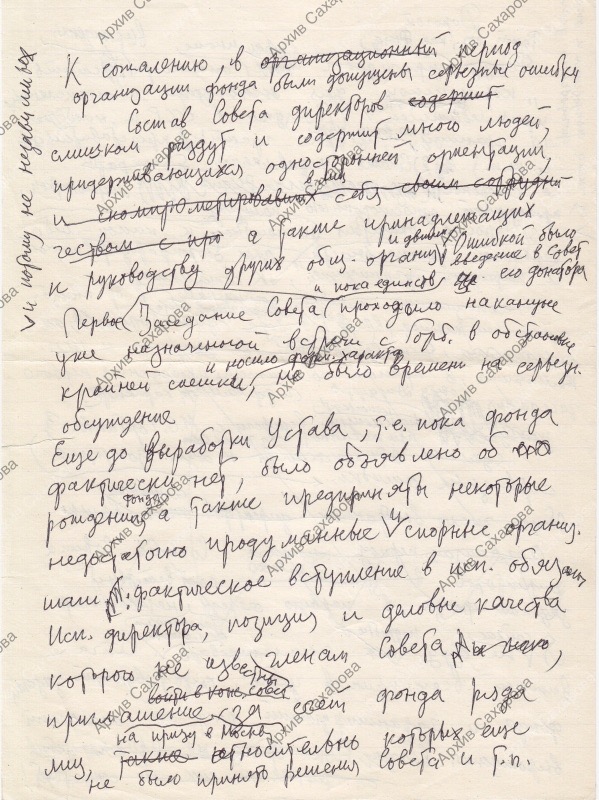 К сожалению, в организационный период
организации фонда были допущены серьезные ошибки
Состав Совета директоров содержит
слишком раздут и содержит много людей,
придерживающихся односторонней ориентации,
и скомпрометировавших себя своим сотрудни
чеством с про а также принадлежащих
и движ
к руководству других общ. организ Ошибкой было
введение в Совет
его донатора
и пока единств
Первое Заседание Совета проходило накануне
уже назначенной встречи с Горб. в обстановке
и носило форм. характер
крайней спешки, не было времени на серьезн.
обсуждение
Еще до выработки Устава, т.е. пока фонда
фактически нет, было объявлено об его
фонда
рождении а также предприняты некоторые
недостаточно продуманные и спорные организ.
шаги фактическое вступление в исп. обязан
Исп. директора, позиция и деловые качества
которого не известны членам Совета
войти в конс. совет
приглашение за счет фонда ряда
на приезд в Москву
лиц, также относительно которых еще
не было принято решения Совета и т.п.
и потому не независимых
Архив Сахарова